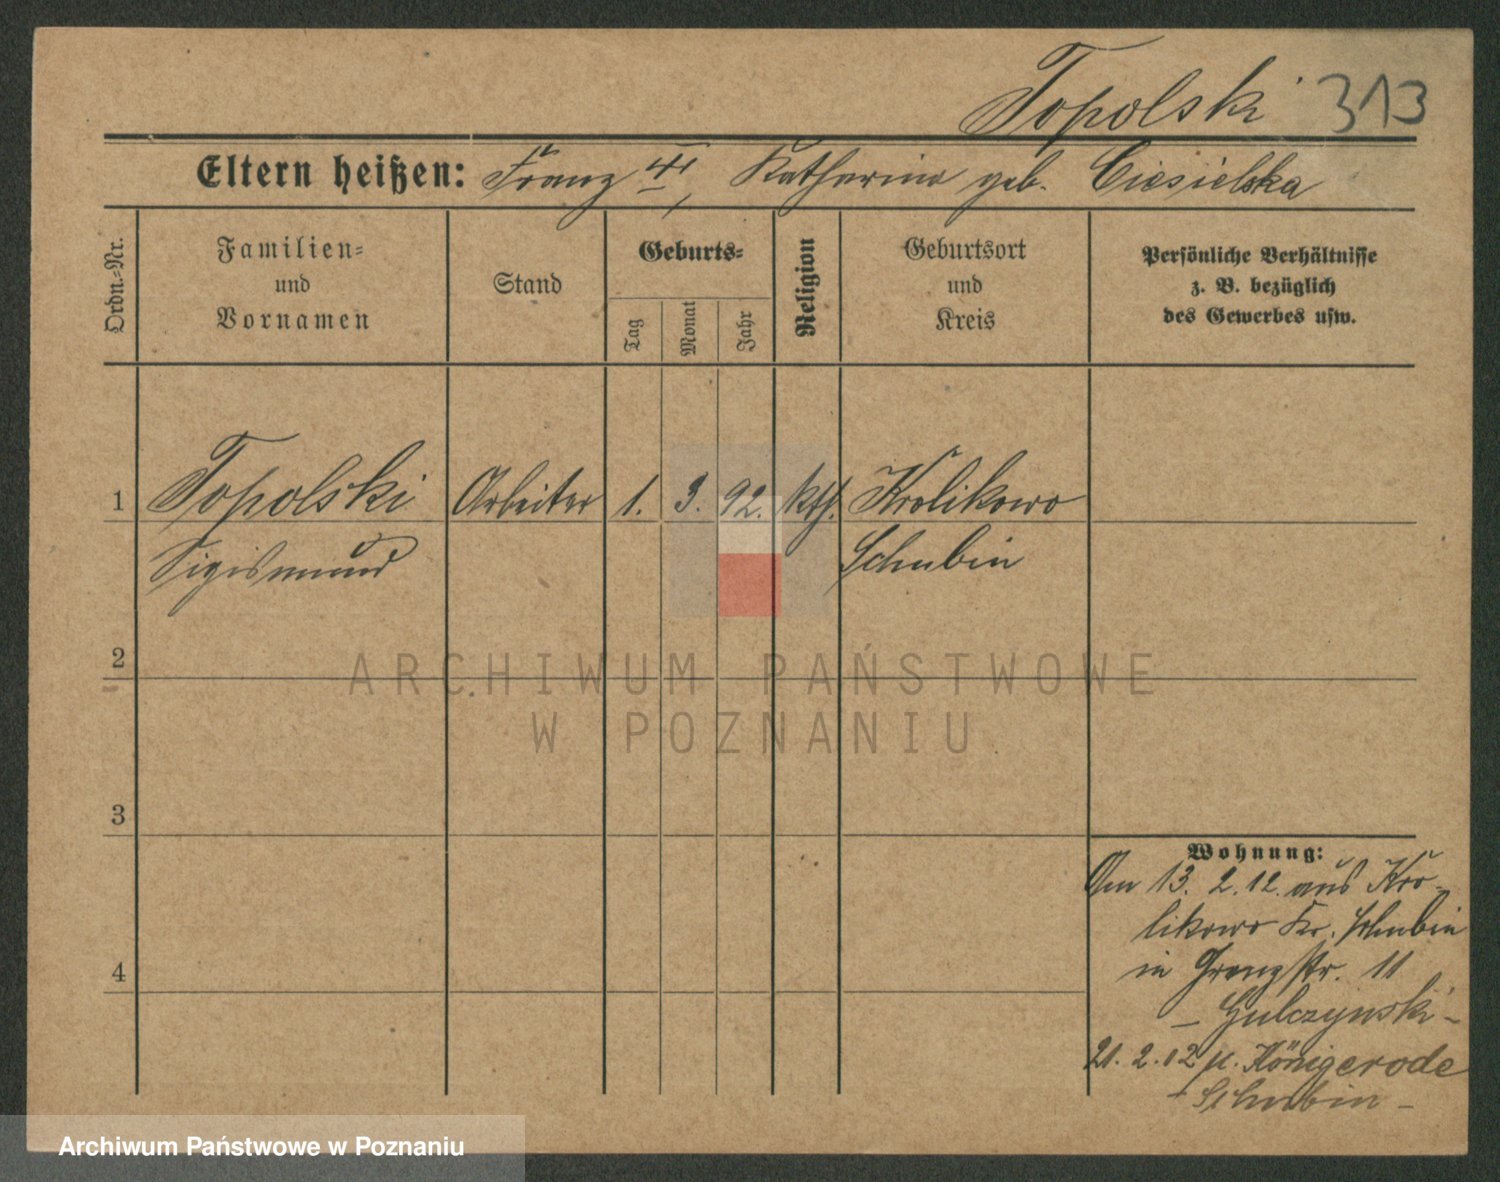 Topolski 313
Eltern heißen: Franz, Katharina geb. Ciesielska
Ordn.-Nr.
Familien-
und
Vornamen
Stand
Geburts-
Tag
Monat
Jahr
Religion
Geburtsort
und
Kreis
Persönliche Verhältnisse
z. B. bezüglich
des Gewerbes usw.
1 Topolski Arbeiter 1. 3. 92. kth. Krolikowo
Sigismund Schubin
2
3
4
Wohnung:
Am 13. 2. 12. aus Kro-
likowo Kr. Schubin
in Grenzstr. 11
- Gulczynski -
21. 2. 12 Königerode
- Schubin -
ARCHIWUM PAŃSTWOWE
W POZNANIU
Archiwum Państwowe w Poznaniu